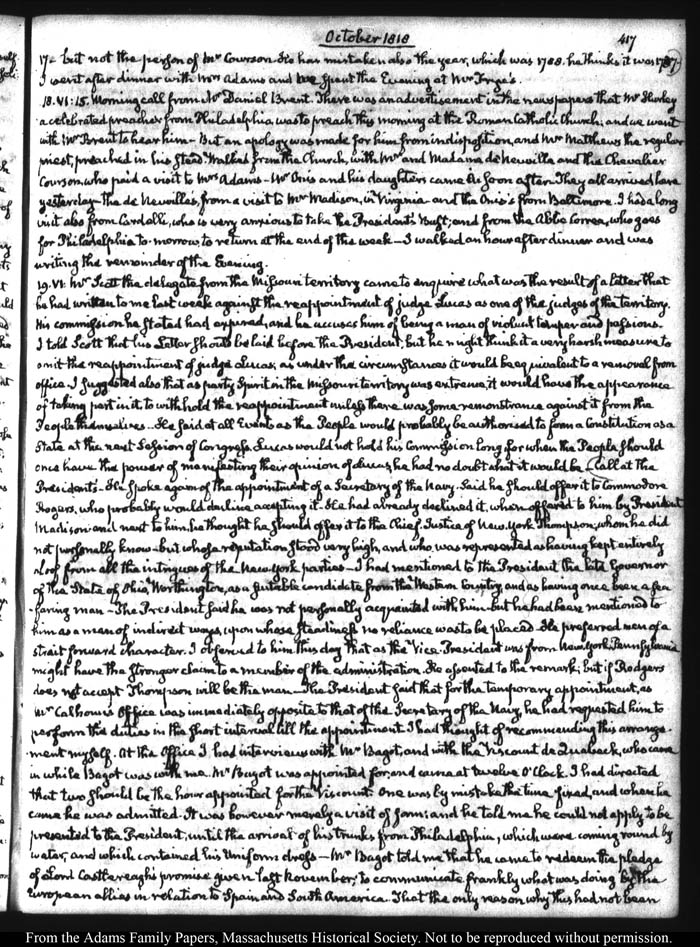 October 1818
417
17– but not the person of Mr Courson. He has mistaken also the year, which was 1788. he thinks it was 1787.
I went after dinner with Mrs Adams and we spent the Evening at Mr Frye's.
18. VI:15. Morning call from Mr Daniel Brent. There was an advertisement in the newspapers that Mr Hurley
a celebrated preacher from Philadelphia was to preach this morning at the Roman Catholic Church; and we went
with Mr Brent to hear him– But an apology was made for him from indisposition, and Mr Matthews the regular
priest, preached in his stead. Walked from the Church, with Mr and Madame de Neuville and the Chevalier
Courson, who paid a visit to Mrs Adams– Mr Onis and his daughters came in soon after. They all arrived here
yesterday– The de Neuville's, from a visit to Mr Madison, in Virginia and the Onis's from Baltimore. I had a long
visit also from Cardelli, who is very anxious to take the President's Bust; and from the Abbe Correa, who goes
for Philadelphia to-morrow, to return at the end of the week– I walked an hour after dinner and was
writing the remainder of the Evening.
19. VI. Mr Scott the delegate from the Missouri territory came to enquire what was the result of a letter that
he had written to me last week against the reappointment of judge Lucas as one of the judges of the territory.
His commission he stated had expired, and he accuses him of being a man of violent temper and passions.
I told Scott that his Letter should be laid before the President, but he might think it a very harsh measure to
omit the reappointment of judge Lucas, as under the circumstances it would be equivalent to a removal from
office. I suggested also that as party Spirit in the Missouri territory was extreme, it would have the appearance
of taking part in it to withhold the reappointment unless there was some remonstrance against it from the
People themselves– He said at all Events as the People would probably be authorised to form a Constitution as a
State at the next Session of Congress, Lucas would not hold his Commission long, for when the People should
once have the power of manifesting their opinion of Lucas, he had no doubt what it would be. Call at the
Presidents– He spoke again of the appointment of a Secretary of the Navy. Said he should offer it to Commodore
Rogers, who probably would decline accepting it. He had already declined it, when offered to him by President
Madison: and next to him, he thought he should offer it to the Chief Justice of New York Thompson, whom he did
not personally know– but whose reputation stood very high, and who was represented as having kept entirely
aloof from all the intrigues of the New York parties– I had mentioned to the President the late Governor
of the State of Ohio, Worthington, as a suitable candidate from the Western Country, and as having once been a sea
faring man– The President said he was not personally acquainted with him– but he had been mentioned to
him as a man of indirect ways, upon whose steadiness no reliance was to be placed. He preferred men of a
strait forward character. I observed to him this day that as the Vice-President was from New York, Pennsylvania
might have the stronger claim to a member of the administration. He assented to the remark; but if Rodgers
does not accept Thompson will be the man– The President said that for the temporary appointment, as
Mr Calhoun's Office was immediately opposite to that of the Secretary of the Navy, he had requested him to
perform the duties in the short interval till the appointment. I had thought of recommending this arrange-
ment myself. At the Office I had interviews with Mr Bagot, and with the Viscount de Quabeck, who came
in while Bagot was with me. Mr Bagot was appointed for, and came at twelve O'Clock. I had directed
that two should be the hour appointed for the Viscount. One was by mistake the time fixed, and when he
came he was admitted. It was however merely a visit of form: and he told me he could not apply to be
presented to the President, until the arrival of his trunks from Philadelphia, which were coming round by
water, and which contained his Uniform dress– Mr Bagot told me that he came to redeem the pledge
of Lord Castlereagh's promise given last November, to communicate frankly what was doing by the
European allies in relation to Spain and South America. That the only reason why this had not been
From the Adams Family Papers, Massachusetts Historical Society. Not to be reproduced without permission.